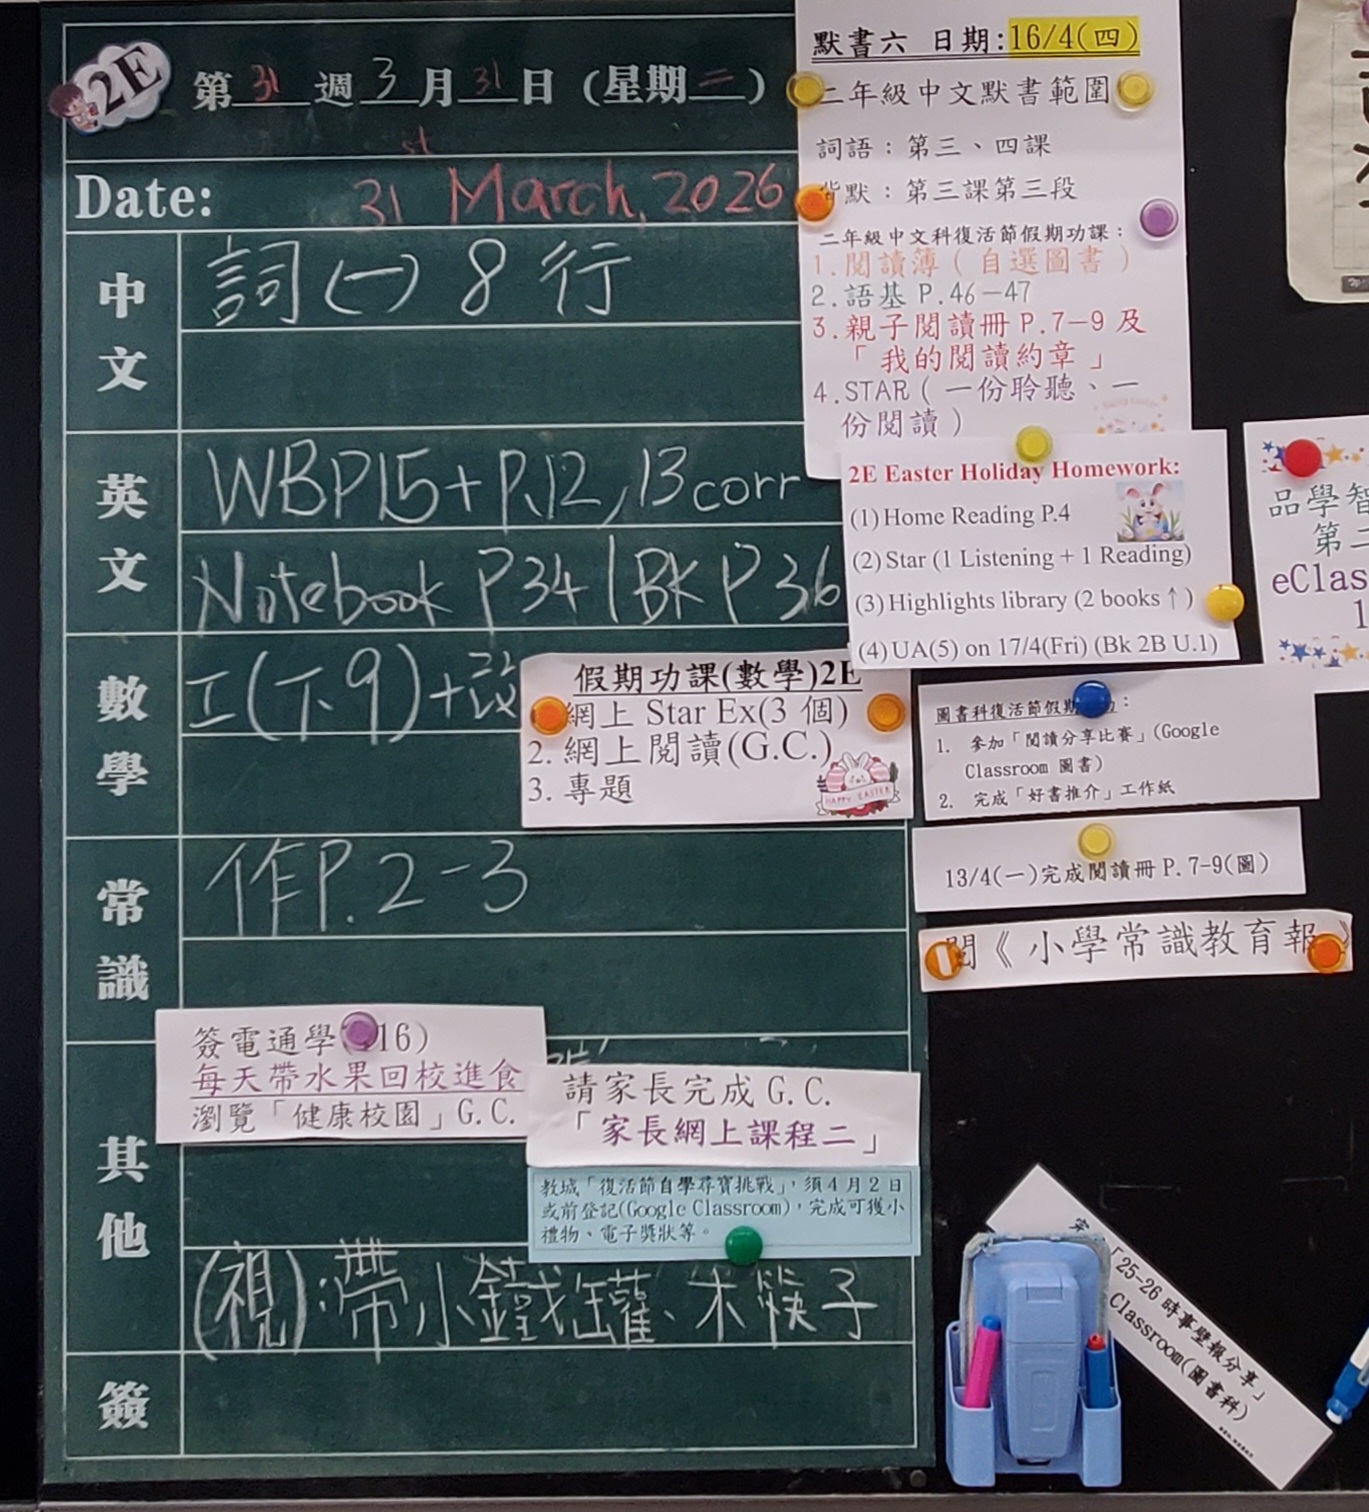 2E
第31週3月31日(星期二)
Date: 31st March, 2026
中文
詞(一) 8 行
英文
WBP15+P.12,13 corr
Notebook P34 | BK P 36
數學
工(下9)+改
常識
作P.2-3
其他
(視):帶小鐵罐、木筷子
簽
默書六 日期:16/4(四)
二年級中文默書範圍
詞語：第三、四課
背默：第三課第三段
二年級中文科復活節假期功課：
1.閱讀簿(自選圖書)
2.語基 P.46-47
3.親子閱讀冊 P.7-9 及
「我的閱讀約章」
4.STAR(一份聆聽、一
份閱讀)
2E Easter Holiday Homework:
(1) Home Reading P.4
(2) Star (1 Listening + 1 Reading)
(3) Highlights library (2 books↑)
(4) UA(5) on 17/4(Fri) (Bk 2B U.1)
假期功課(數學)2E
網上 Star Ex(3 個)
2. 網上閱讀(G.C.)
3. 專題
HAPPY EASTER
圖書科復活節假期：
1. 參加「閱讀分享比賽」(Google
Classroom 圖書)
2. 完成「好書推介」工作紙
13/4(一)完成閱讀冊 P.7-9(圖)
閱《小學常識教育報》
簽電通學 16)
每天帶水果回校進食
瀏覽「健康校園」G.C.
請家長完成 G.C.
「家長網上課程二」
教城「復活節自學尋寶挑戰」，須4月2日
或前登記(Google Classroom)，完成可獲小
禮物、電子獎狀等。
品學智
第二
eClas
1
「25-26 時事壁報分享」
Classroom(圖書科)